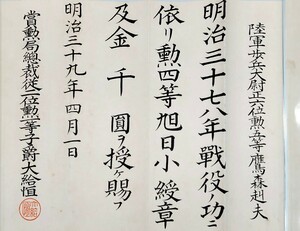 陸軍歩兵大尉正六位勲五等鷹森赳夫
明治三十七八年戰役ノ功ニ
依リ勲四等旭日小綬章
及金千圓ヲ授ケ賜フ
明治三十九年四月一日
賞勲局總裁從二位勲一等子爵大給恒